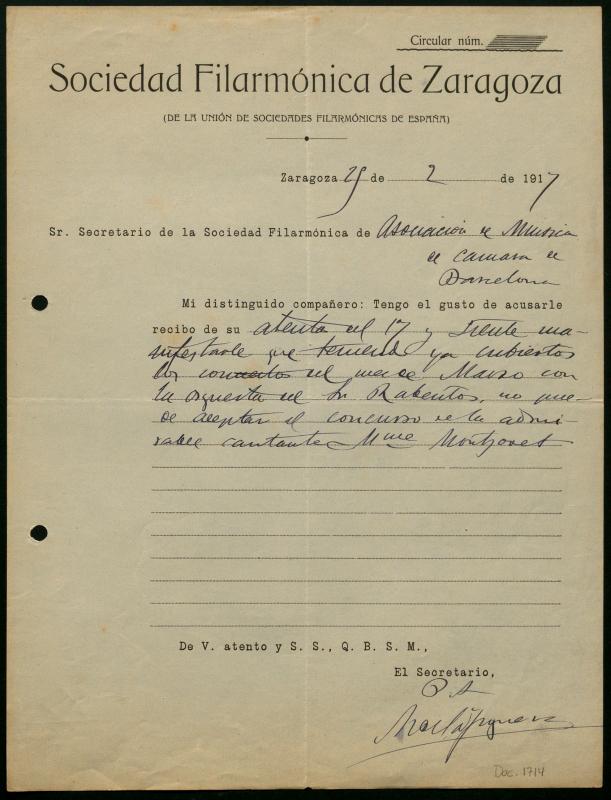 Circular núm.
Sociedad Filarmónica de Zaragoza
(DE LA UNIÓN DE SOCIEDADES FILARMÓNICAS DE ESPAÑA)
Zaragoza 25 de 2 de 1917
Sr. Secretario de la Sociedad Filarmónica de Asociación de Musica
de camara de
Barcelona
Mi distinguido compañero: Tengo el gusto de acusarle
recibo de su atenta del 17 y siente ma-
nifestarle que teniendo ya cubiertos
los conciertos del mes de Marzo con
la orquesta del Sr Rabentos, no pue-
de aceptar el concurso de la admi-
rable cantante Mme
De V. atento y S. S., Q. B. S. M.,
El Secretario,
P A
Doc. 1714